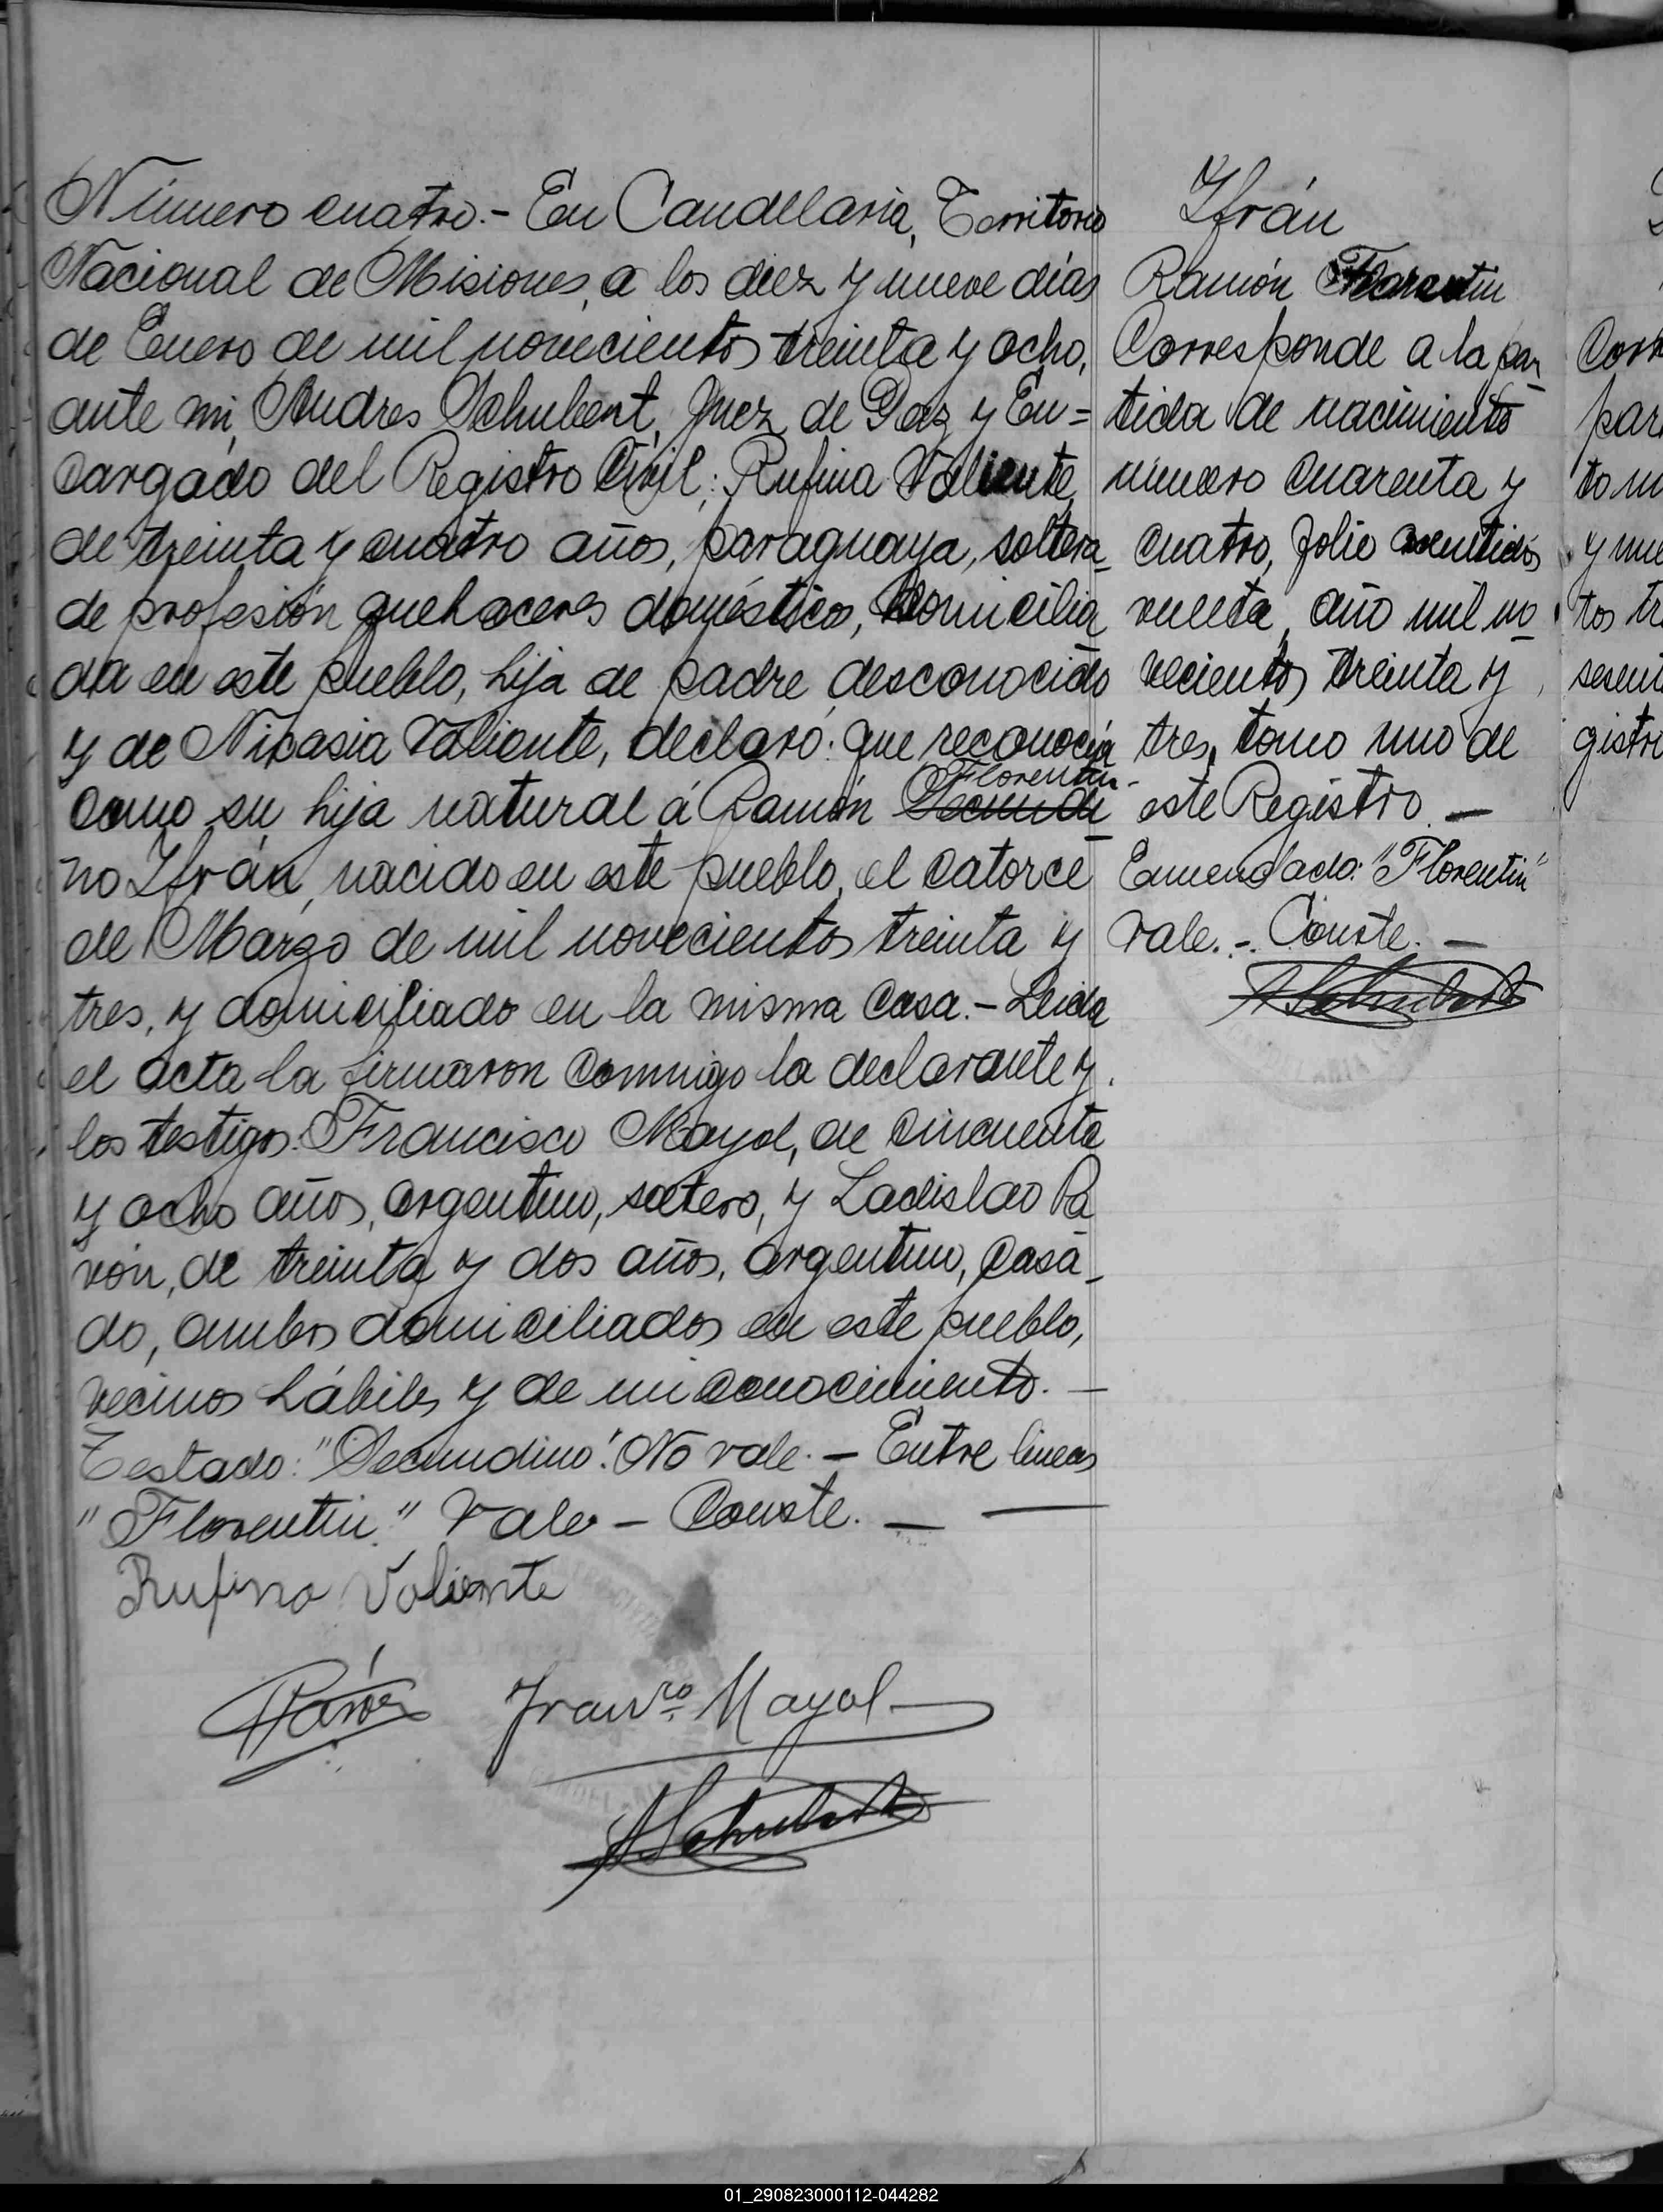 Número cuatro.- En Candelaria, Territorio
Nacional de Misiones, a los diez y nueve días
de Enero de mil novecientos treinta y ocho,
ante mi, Andres Schubert, Juez de Paz y En=
cargado del Registro Civil; Rufina Valiente,
de treinta y cuatro años, paraguaya, soltera
de profesión quehaceres domésticos, domicilia
da en este pueblo, hija de padre desconocido
y de Nicasia Valiente, declaró: que reconocía
Florentin
como su hija natural á Ramón Secundi
no Ifrán, nacido en este pueblo, el catorce
de Marzo de mil novecientos treinta y
tres, y domiciliado en la misma casa.- Leida
el acta la firmaron conmigo la declarante y
los testigos: Francisco Mayol, de cincuenta
y ocho años, argentino, soltero, y Ladislao Pa
vón, de treinta y dos años, argentino, casa-
do, ambos domiciliados en este pueblo,
vecinos hábiles y de mi conocimiento. -
Testado: "Secundino". No vale. - Entre lineas
"Florentin." Vale - Conste. -
Rufina Valiente
Pavón Franco. Mayol
ASchubert
Ifrán
Ramón Florentin
Corresponde a la par
tida de nacimiento
número cuarenta y
cuatro, folio veintidós
vuelta, año mil no
vecientos treinta y
tres, tomo uno de
este Registro. -
Enmendado: "Florentin"
Vale. - Conste. -
ASchubert
par
y nue
tos tr
gistro
01_290823000112-044282